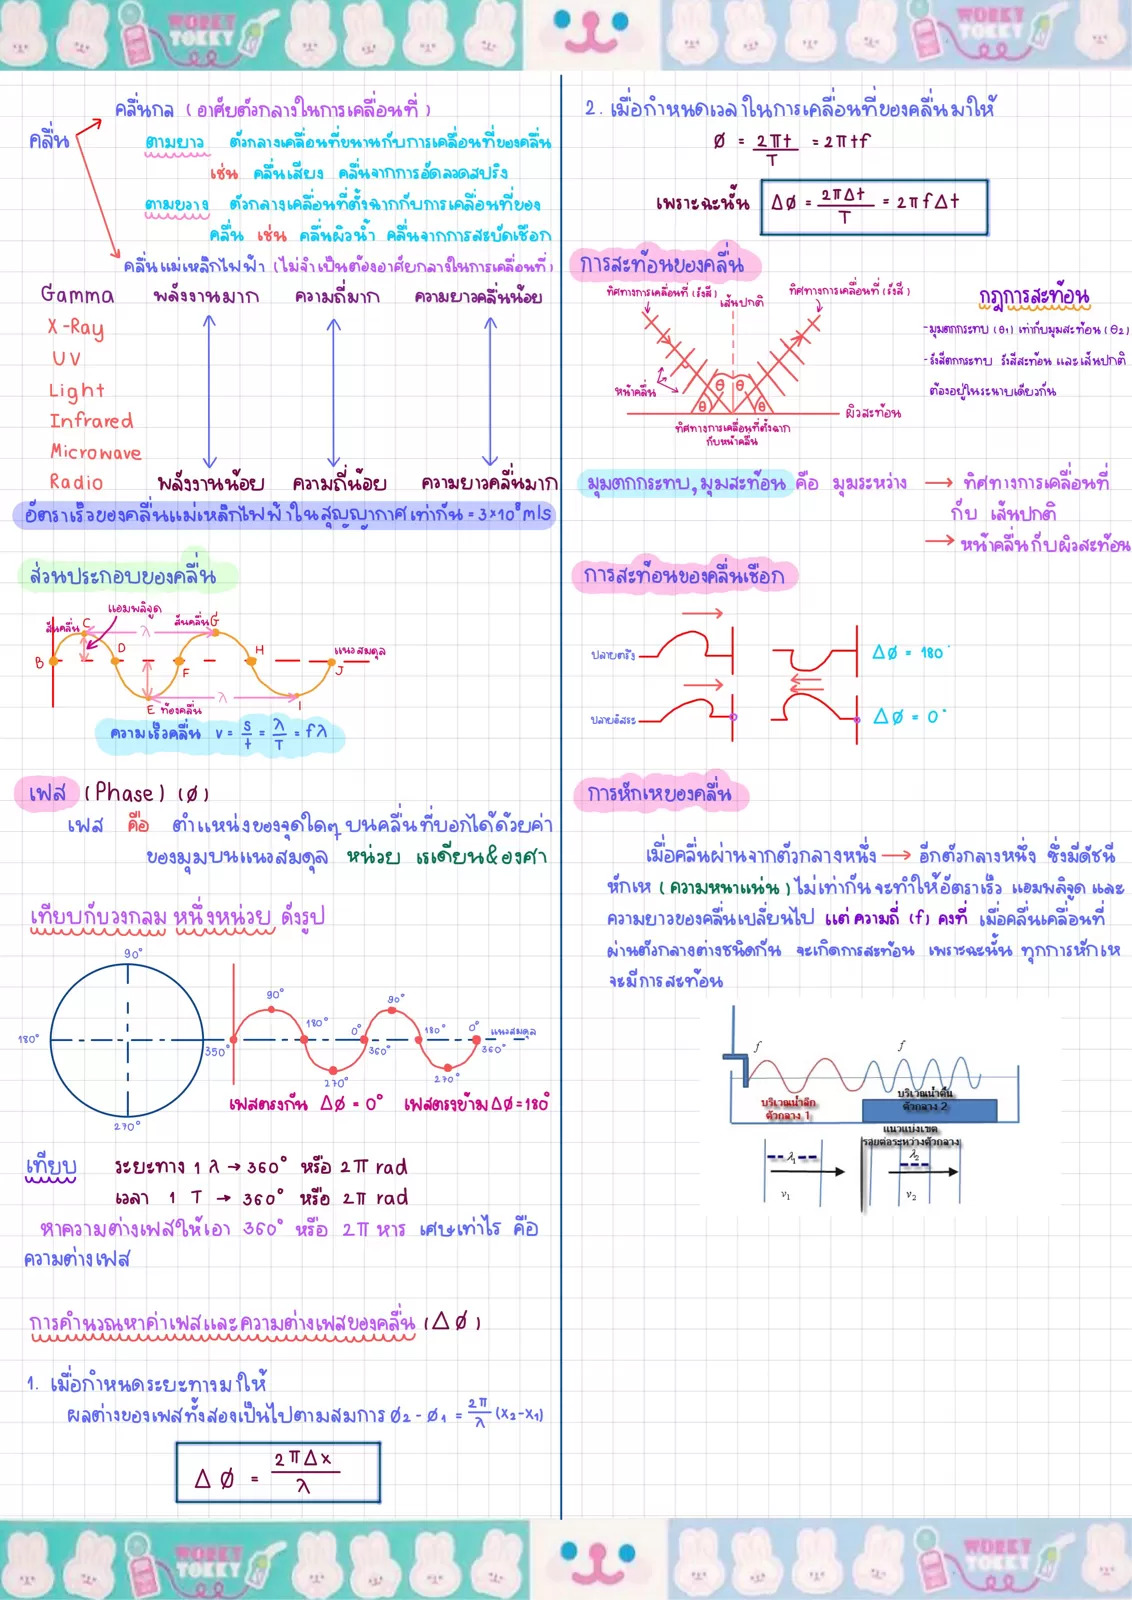 WORKY
TOKKY
WORKY
TOKKY
คลื่นกล (อาศัยตัวกลางในการเคลื่อนที่)
คลื่น
ตามยาว ตัวกลางเคลื่อนที่ขนานกับการเคลื่อนที่ของคลื่น
เช่น คลื่นเสียง คลื่นจากการอัดลวดสปริง
ตามขวาง ตัวกลางเคลื่อนที่ตั้งฉากกับการเคลื่อนที่ของ
คลื่น เช่น คลื่นผิวน้ำ คลื่นจากการสะบัดเชือก
คลื่นแม่เหล็กไฟฟ้า (ไม่จำเป็นต้องอาศัยกลางในการเคลื่อนที่)
Gamma พลังงานมาก ความถี่มาก ความยาวคลื่นน้อย
X-Ray
UV
Light
Infrared
Microwave
Radio พลังงานน้อย ความถี่น้อย ความยาวคลื่นมาก
อัตราเร็วของคลื่นแม่เหล็กไฟฟ้าในสุญญากาศเท่ากับ = 3×10⁸ m/s
ส่วนประกอบของคลื่น
แอมพลิจูด
สันคลื่น C λ สันคลื่น G
B D F H แนวสมดุล J
λ
E ท้องคลื่น I
ความเร็วคลื่น v = s/t = λ/T = fλ
เฟส (Phase) (ø)
เฟส คือ ตำแหน่งของจุดใดๆ บนคลื่นที่บอกได้ด้วยค่า
ของมุมบนแนวสมดุล หน่วย เรเดียน&องศา
เทียบกับวงกลม หนึ่งหน่วย ดังรูป
90°
180°
350°
270°
90° 90°
180° 0° 180° 0° แนวสมดุล
360° 360°
270° 270°
เฟสตรงกัน Δø = 0° เฟสตรงข้าม Δø = 180°
เทียบ ระยะทาง 1 λ → 360° หรือ 2π rad
เวลา 1 T → 360° หรือ 2π rad
หาความต่างเฟสให้เอา 360° หรือ 2π หาร เศษเท่าไร คือ
ความต่างเฟส
การคำนวณหาค่าเฟสและความต่างเฟสของคลื่น (Δø)
1. เมื่อกำหนดระยะทางมาให้
ผลต่างของเฟสทั้งสองเป็นไปตามสมการ ø₂ - ø₁ = 2π/λ (x₂-x₁)
Δø = 2πΔx/λ
2. เมื่อกำหนดเวลาในการเคลื่อนที่ของคลื่นมาให้
ø = 2πt/T = 2πtf
เพราะฉะนั้น Δø = 2πΔt/T = 2πfΔt
การสะท้อนของคลื่น
ทิศทางการเคลื่อนที่ (รังสี) เส้นปกติ ทิศทางการเคลื่อนที่ (รังสี)
หน้าคลื่น
θ θ
θ θ
ผิวสะท้อน
ทิศทางการเคลื่อนที่ตั้งฉาก
กับหน้าคลื่น
กฎการสะท้อน
-มุมตกกระทบ (θ₁) เท่ากับมุมสะท้อน (θ₂)
-รังสีตกกระทบ รังสีสะท้อน และเส้นปกติ
ต้องอยู่ในระนาบเดียวกัน
มุมตกกระทบ, มุมสะท้อน คือ มุมระหว่าง → ทิศทางการเคลื่อนที่
กับ เส้นปกติ
→ หน้าคลื่นกับผิวสะท้อน
การสะท้อนของคลื่นเชือก
ปลายตรึง Δø = 180°
ปลายอิสระ Δø = 0°
การหักเหของคลื่น
เมื่อคลื่นผ่านจากตัวกลางหนึ่ง → อีกตัวกลางหนึ่ง ซึ่งมีดัชนี
หักเห (ความหนาแน่น) ไม่เท่ากัน จะทำให้อัตราเร็ว แอมพลิจูด และ
ความยาวของคลื่นเปลี่ยนไป แต่ ความถี่ (f) คงที่ เมื่อคลื่นเคลื่อนที่
ผ่านตัวกลางต่างชนิดกัน จะเกิดการสะท้อน เพราะฉะนั้น ทุกการหักเห
จะมีการสะท้อน
f f
บริเวณน้ำลึก
ตัวกลาง 1
บริเวณน้ำตื้น
ตัวกลาง 2
แนวแบ่งเขต
รอยต่อระหว่างตัวกลาง
λ₁ λ₂
v₁ v₂
WORKY
TOKKY
WORKY
TOKKY